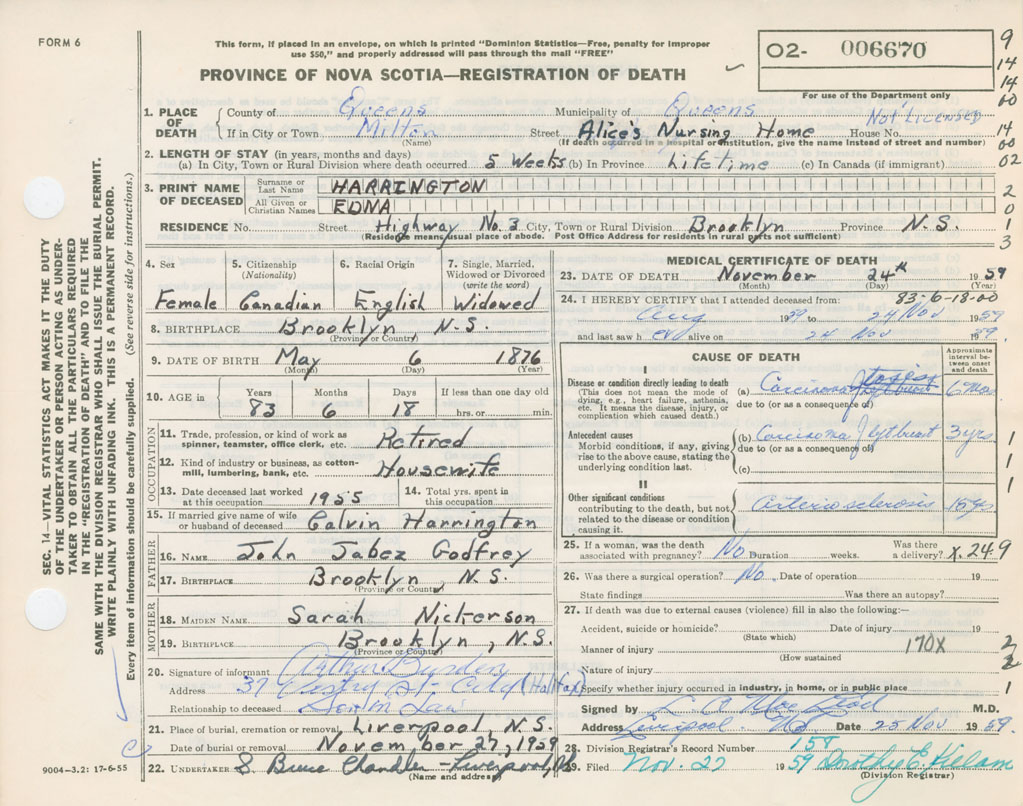 FORM 6
This form, if placed in an envelope, on which is printed "Dominion Statistics—Free, penalty for improper
use $50," and properly addressed will pass through the mail "FREE"
PROVINCE OF NOVA SCOTIA—REGISTRATION OF DEATH
02- 006670
For use of the Department only
9
14
14
00
14
00
02
2
0
1
3
1. PLACE OF DEATH { County of Queens Municipality of Queens Not Licensed
If in City or Town Milton (Name) Street Alice's Nursing Home House No.
(If death occurred in a hospital or institution, give the name instead of street and number)
2. LENGTH OF STAY (in years, months and days)
(a) In City, Town or Rural Division where death occurred 5 Weeks (b) In Province Lifetime (c) In Canada (if immigrant)
3. PRINT NAME OF DECEASED { Surname or Last Name HARRINGTON
All Given or Christian Names EDNA
RESIDENCE No. Street Highway No. 3 City, Town or Rural Division Brooklyn Province N.S.
(Residence means usual place of abode. Post Office Address for residents in rural parts not sufficient)
SEC. 14—VITAL STATISTICS ACT MAKES IT THE DUTY
OF THE UNDERTAKER OR PERSON ACTING AS UNDER-
TAKER TO OBTAIN ALL THE PARTICULARS REQUIRED
IN THE "REGISTRATION OF DEATH" AND TO FILE THE
SAME WITH THE DIVISION REGISTRAR WHO SHALL ISSUE THE BURIAL PERMIT.
WRITE PLAINLY WITH UNFADING INK. THIS IS A PERMANENT RECORD.
Every item of information should be carefully supplied. (See reverse side for instructions.)
4. Sex 5. Citizenship (Nationality) 6. Racial Origin 7. Single, Married, Widowed or Divorced (write the word)
Female Canadian English Widowed
8. BIRTHPLACE Brooklyn N.S.
(Province or Country)
9. DATE OF BIRTH May 6 1876
(Month) (Day) (Year)
10. AGE in Years Months Days If less than one day old
83 6 18 hrs. or min.
OCCUPATION
11. Trade, profession, or kind of work as spinner, teamster, office clerk, etc. Retired
12. Kind of industry or business, as cotton-mill, lumbering, bank, etc. Housewife
13. Date deceased last worked at this occupation 1955 14. Total yrs. spent in this occupation
15. If married give name of wife or husband of deceased Calvin Harrington
FATHER
16. NAME John Jabez Godfrey
17. BIRTHPLACE Brooklyn, N.S.
(Province or Country)
MOTHER
18. MAIDEN NAME Sarah Nickerson
19. BIRTHPLACE Brooklyn, N.S.
(Province or Country)
20. Signature of informant Arthur
Address 37 St. City (Halifax)
Relationship to deceased Son in Law
21. Place of burial, cremation or removal Liverpool N.S.
Date of burial or removal November 27, 1959
22. UNDERTAKER S. Bruce Chandler - Liverpool, NS
(Name and address)
9004-3.2: 17-6-55
MEDICAL CERTIFICATE OF DEATH
23. DATE OF DEATH November 24th 1959
(Month) (Day) (Year)
83-6-18-00
24. I HEREBY CERTIFY that I attended deceased from:
Aug 1959 to 24 Nov 1959
and last saw her alive on 24 Nov 1959
CAUSE OF DEATH
Approximate interval between onset and death
I
Disease or condition directly leading to death
(This does not mean the mode of dying, e.g., heart failure, asthenia, etc. It means the disease, injury, or complication which caused death.)
(a) Carcinoma 6 mos
due to (or as a consequence of)
Antecedent causes
Morbid conditions, if any, giving rise to the above cause, stating the underlying condition last.
(b) Carcinoma left breast 3 yrs
due to (or as a consequence of)
(c)
1
1
1
II
Other significant conditions
contributing to the death, but not related to the disease or condition causing it.
Arteriosclerosis 15 yrs
1
25. If a woman, was the death associated with pregnancy? No Duration weeks. Was there a delivery? X.249
26. Was there a surgical operation? No Date of operation 19
State findings Was there an autopsy?
27. If death was due to external causes (violence) fill in also the following:—
Accident, suicide or homicide? Date of injury 19
(State which)
Manner of injury 170X
(How sustained)
Nature of injury
2
2
Specify whether injury occurred in industry, in home, or in public place 1
Signed by M.D.
Address Liverpool NS Date 25 Nov 1959.
28. Division Registrar's Record Number 159
29. Filed Nov. 27 1959 Dorothy E.
(Division Registrar)